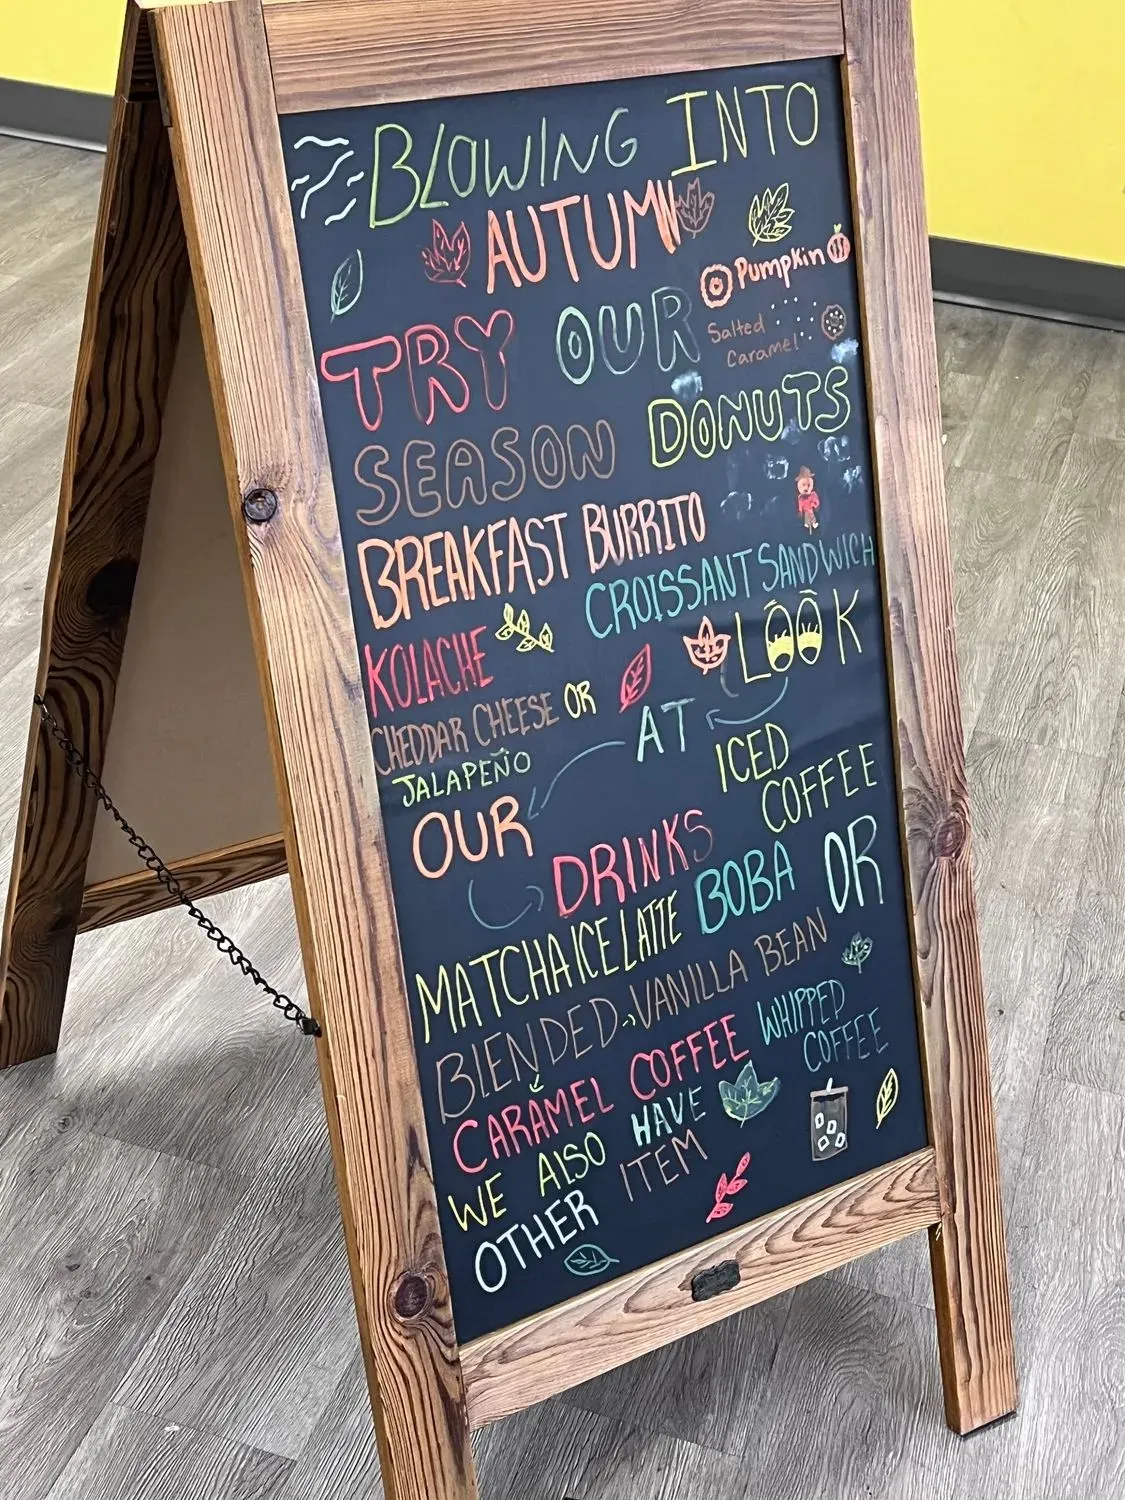 BLOWING INTO
AUTUMN
Pumpkin
TRY OUR
Salted
Caramel
SEASON DONUTS
BREAKFAST BURRITO
CROISSANT SANDWICH
KOLACHE
CHEDDAR CHEESE OR
JALAPEÑO
LOOK
AT
OUR
DRINKS
ICED
COFFEE
MATCHA ICE LATTE BOBA OR
BLENDED → VANILLA BEAN
CARAMEL COFFEE
WHIPPED
COFFEE
WE ALSO HAVE
OTHER ITEM